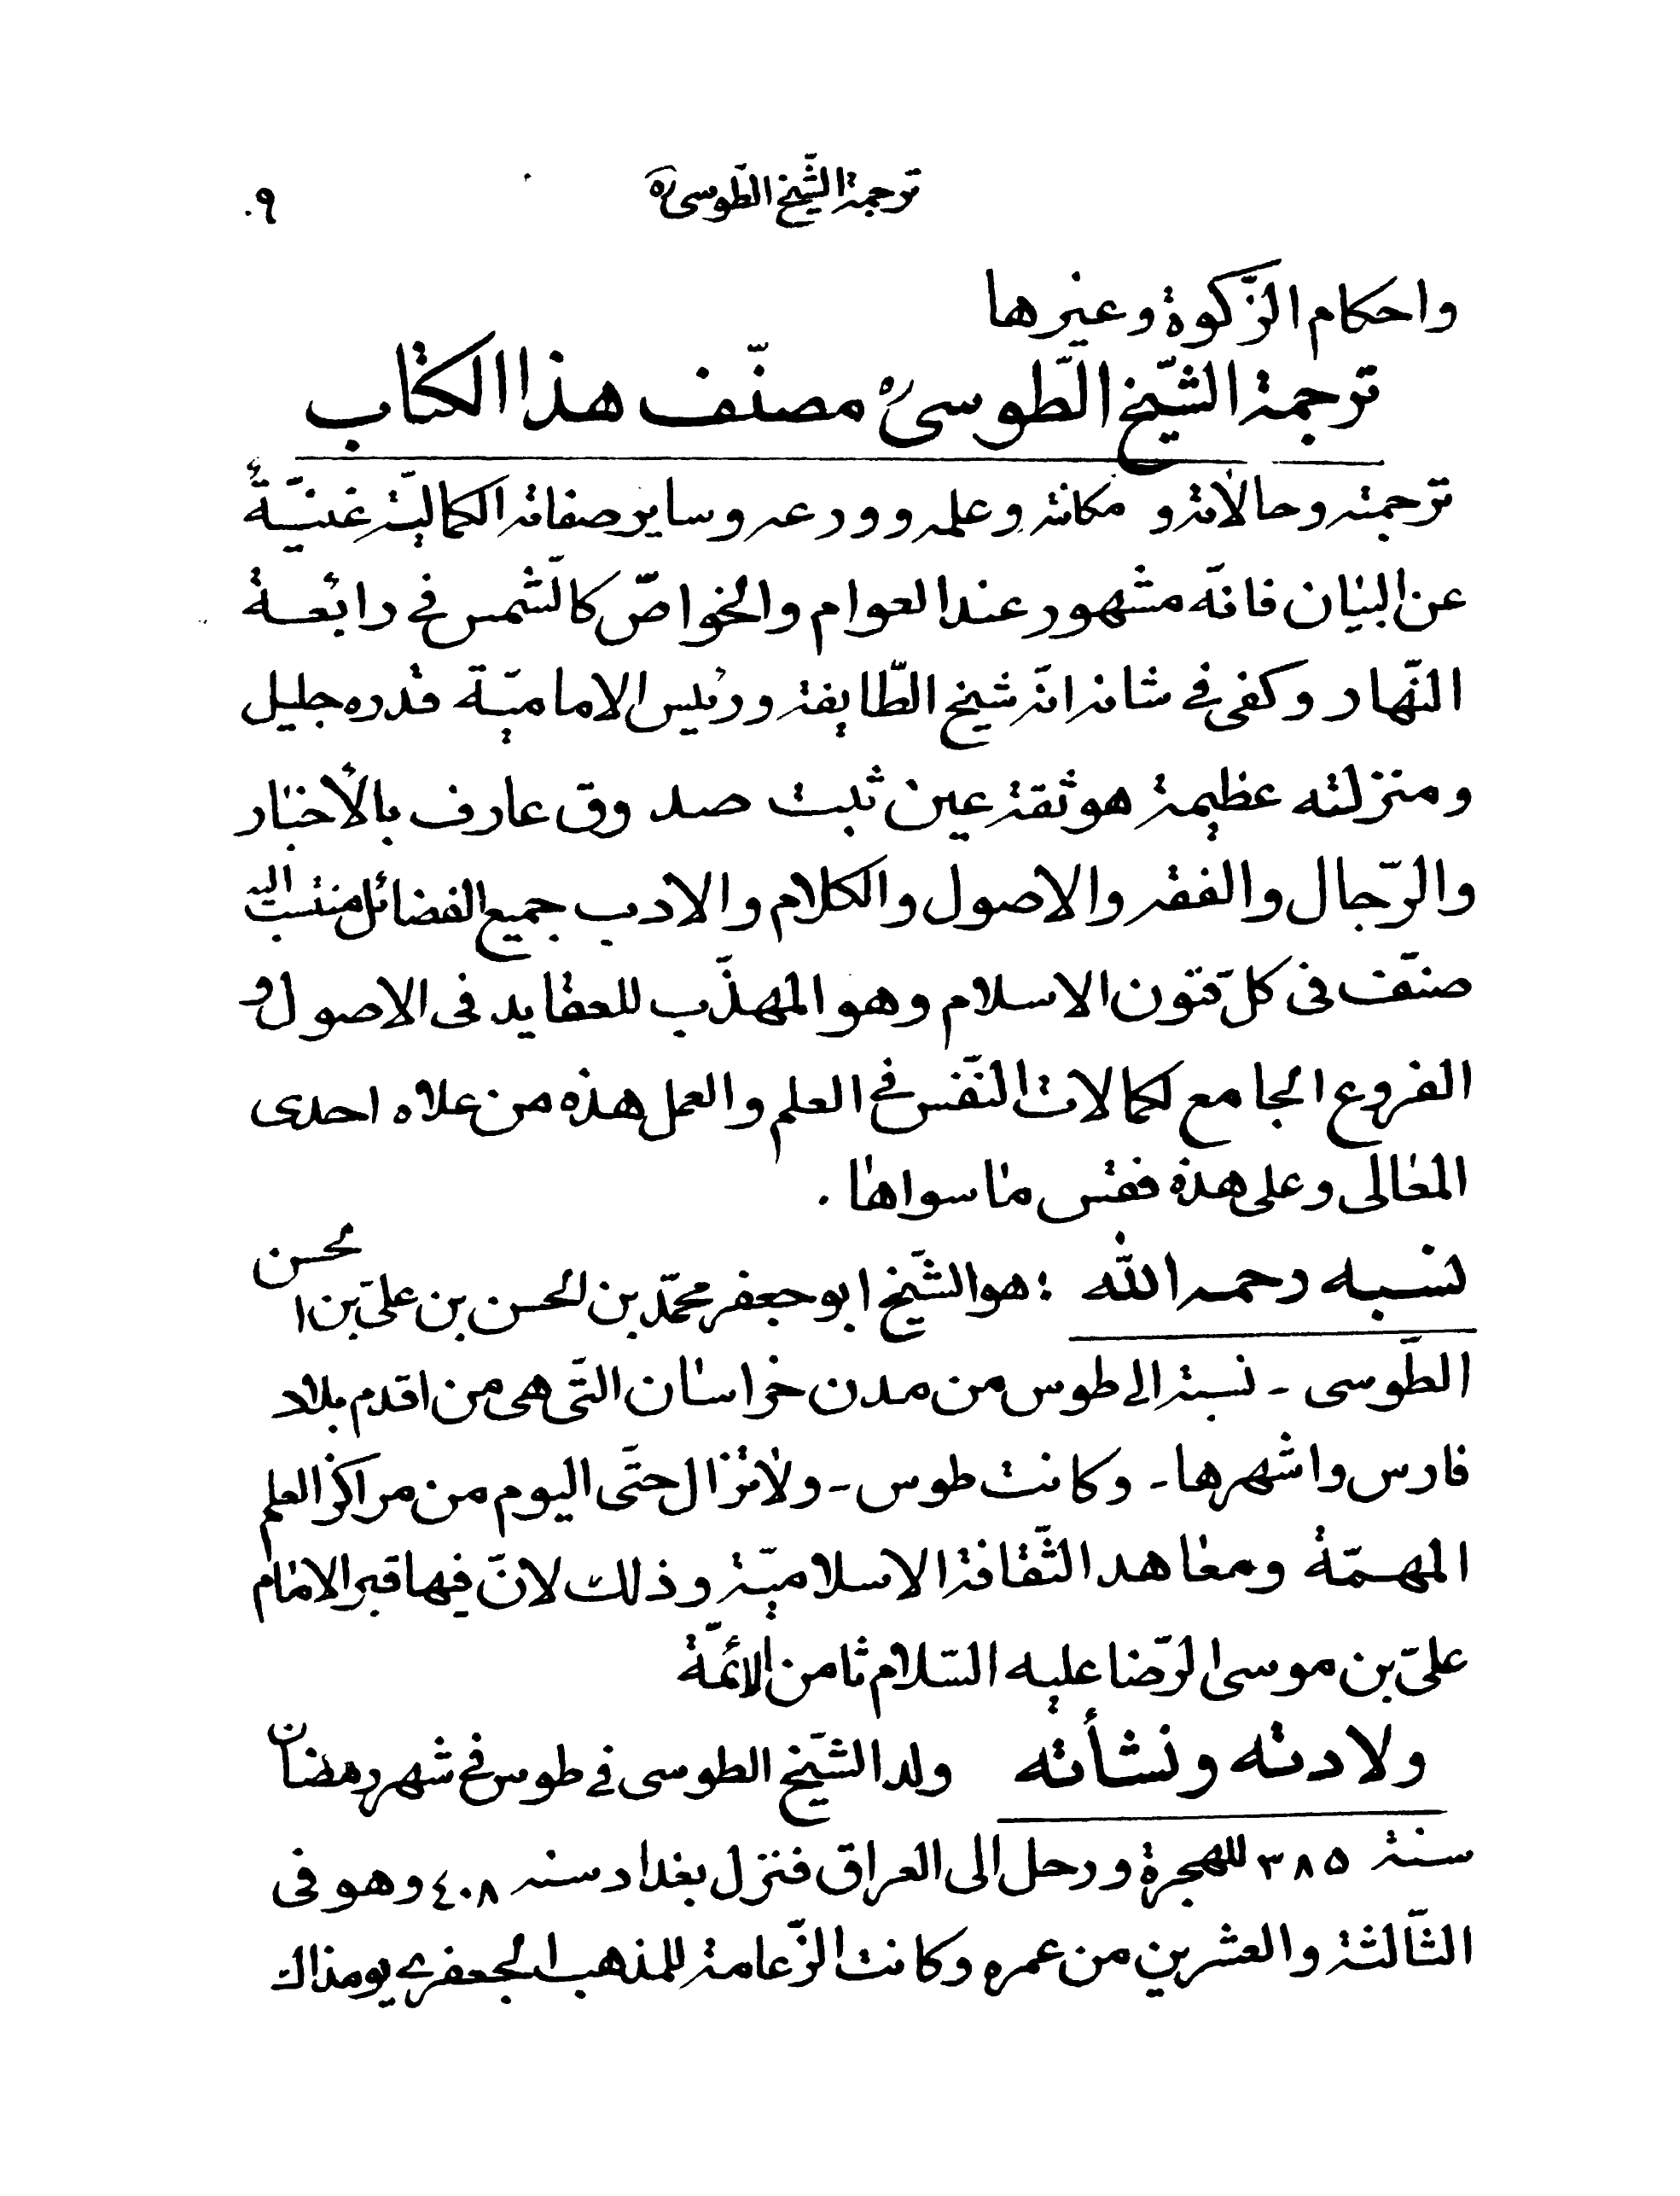 ترجمة الشّيخ الطّوسى ره
٩.
واحكام الزّكوة وغيرها
ترجمة الشّيخ الطّوسى ره مصنّف هذا الكتاب
ترجمته وحالاته و مكانته وعلمه وورعه وساير صفاته الكماليّة غنيّةٌ
عن البيان فانّه مشهور عند العوام والخواصّ كالشّمس في رائعة
النّهار وكفى في شانه انّه شيخ الطّايفة ورئيس الاماميّة قدره جليل
ومنزلته عظيمة هو ثقة عين ثبت صدوق عارف بالأخبار
والرّجال والفقه والاصول والكلام والادب جميع الفضائل منتسبة اليه
صنّف فى كلّ فنون الاسلام وهو المهذّب للعقايد فى الاصول و
الفروع الجامع لكمالات النّفس في العلم والعمل هذه من علاه احدى
المعالى وعلى هذه فقس ما سواها .
نسبه رحمه الله : هو الشّيخ ابو جعفر محمّد بن الحسن بن علىّ بن الحسن
الطّوسى - نسبة الى طوس من مدن خراسان التّى هى من اقدم بلاد
فارس واشهرها - وكانت طوس - ولا تزال حتّى اليوم من مراكز العلم
المهمّة ومعاهد الثّقافة الاسلاميّة وذلك لانّ فيها قبر الامام
علىّ بن موسى الرّضا عليه السّلام ثامن الائمّة
ولادته ونشأته ولد الشّيخ الطوسى في طوس في شهر رمضان
سنة ٣٨٥ للهجرة ورحل الى العراق فنزل بغداد سنه ٤٠٨ وهو فى
الثّالثة والعشرين من عمره وكانت الزّعامة للمذهب الجعفرى يومذاك